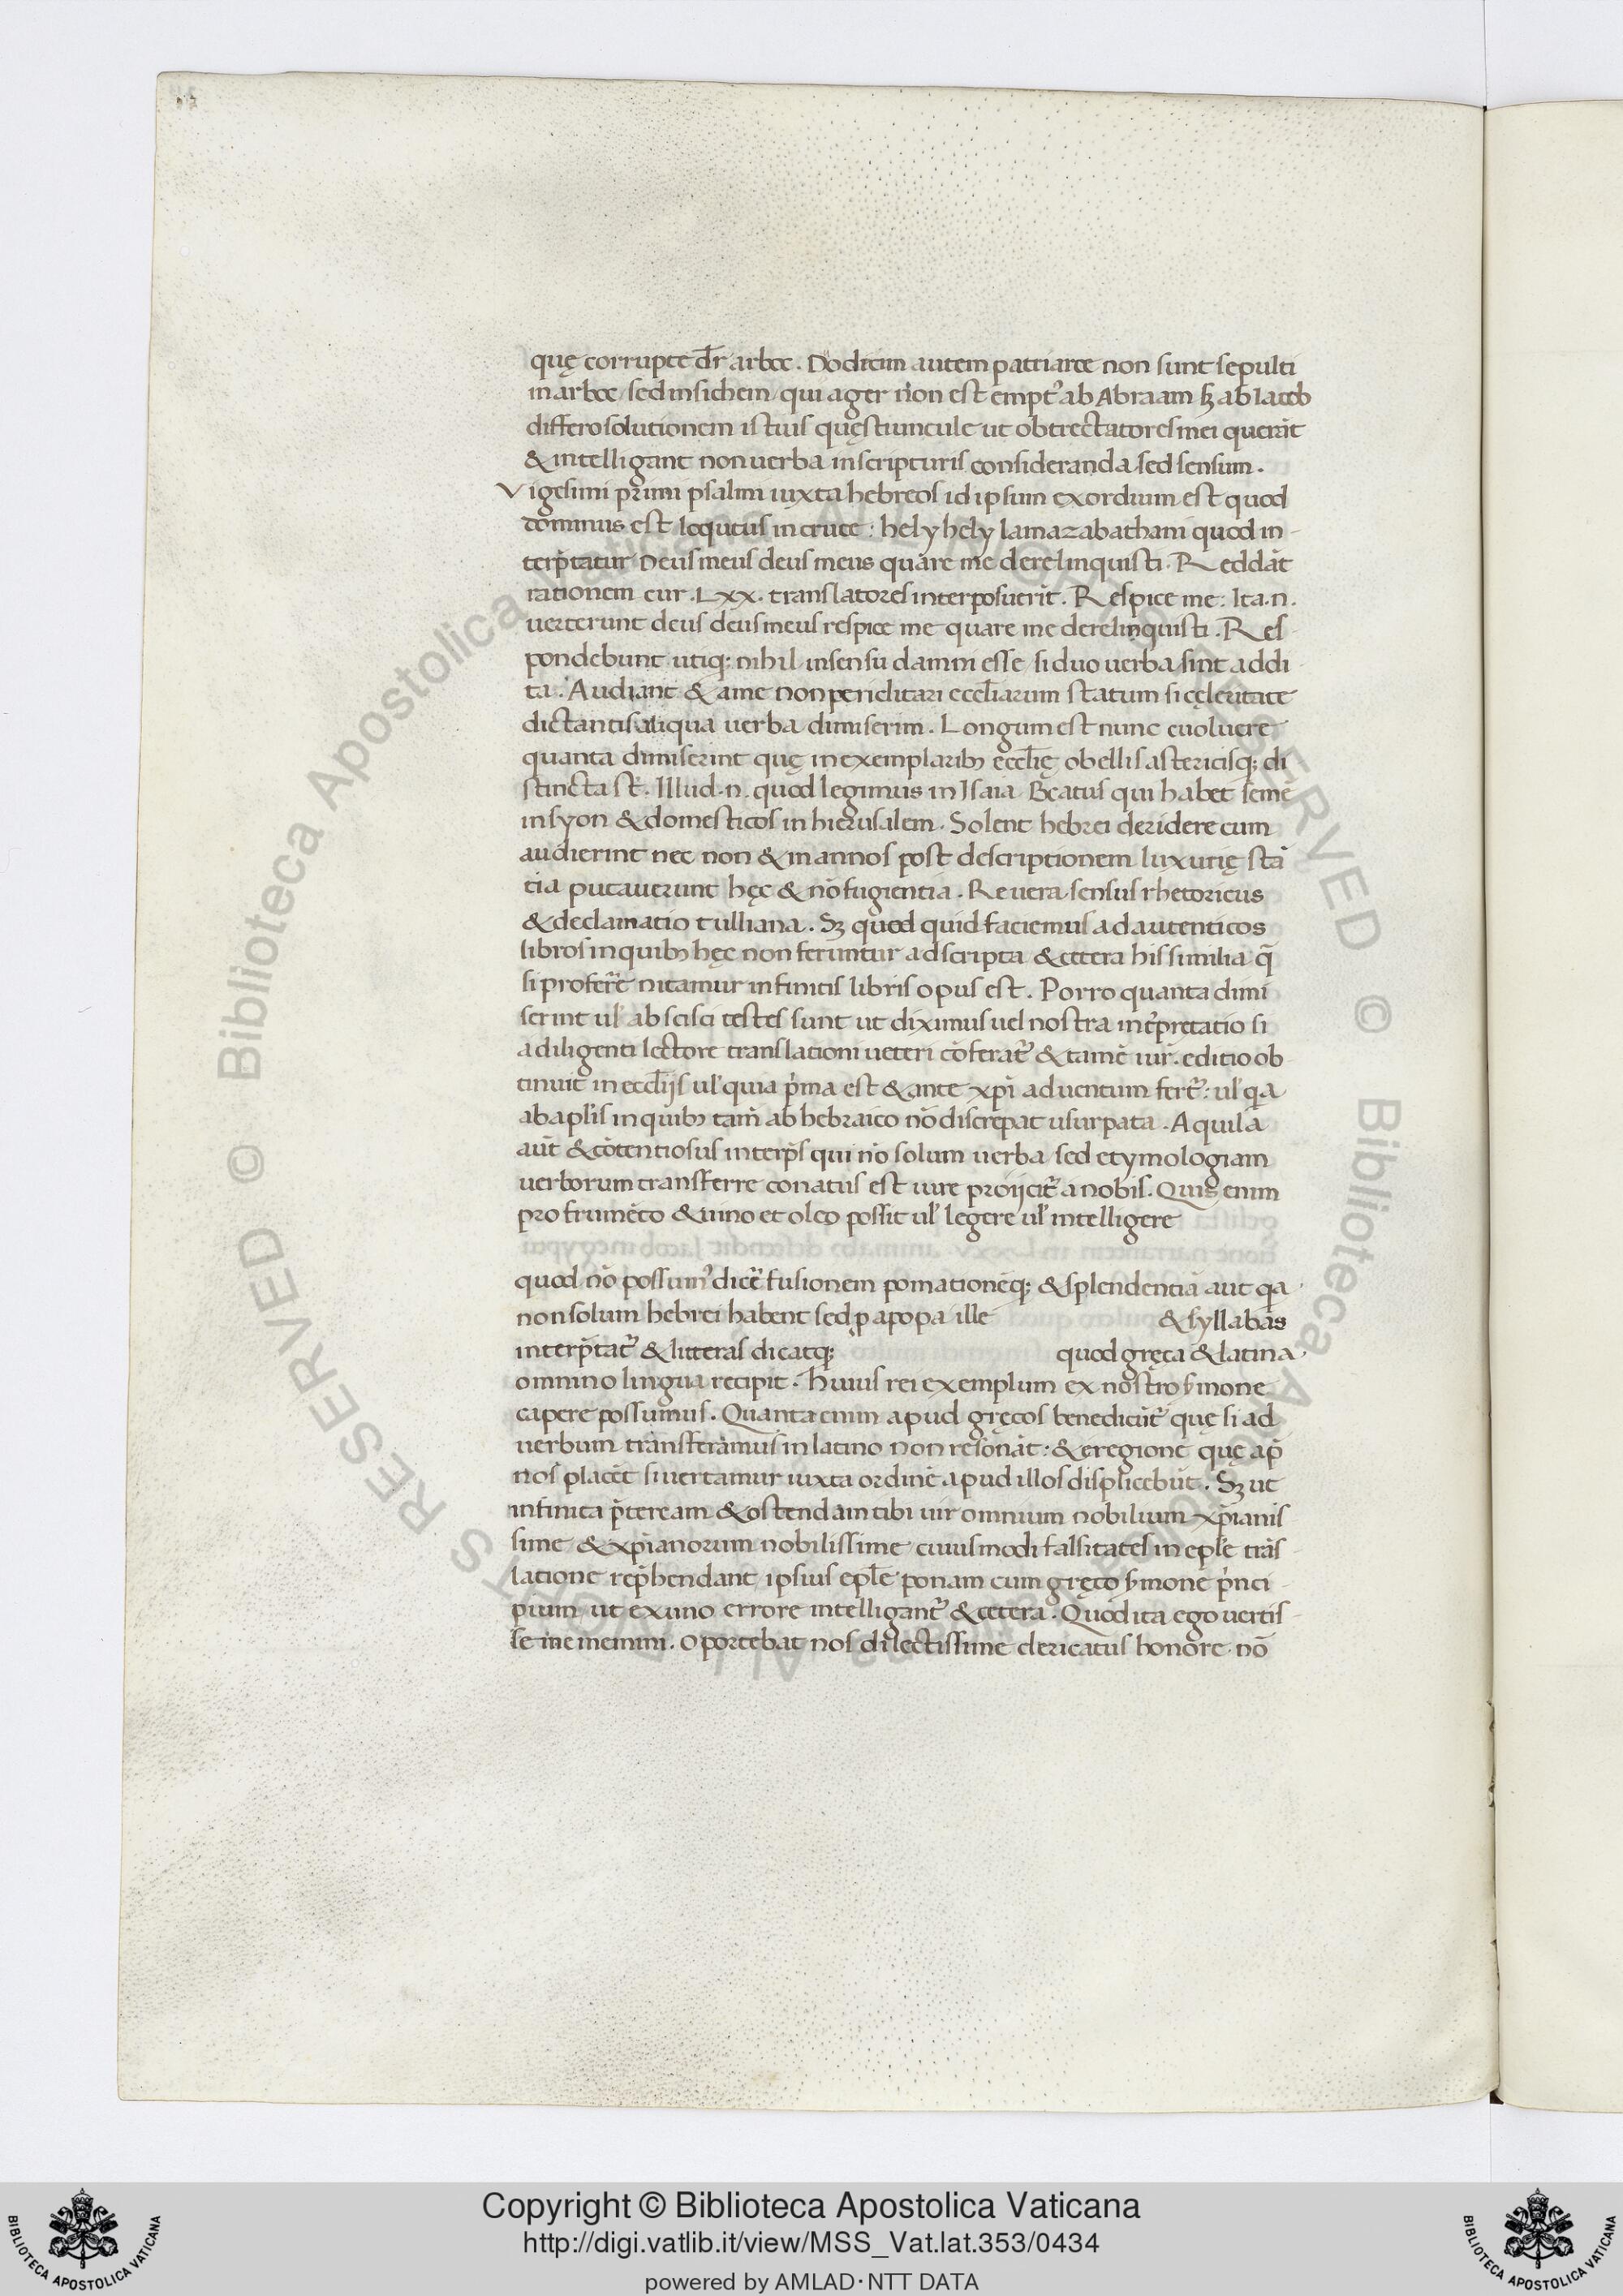 quę corrupte dr̄ arboc. Dodicim autem patriarce non sunt sepulti
in arboc sed in sichem qui ager non est empt᾿ ab Abraam sȝ ab Iacob
differo solutionem istius quęstiuncule ut obtrectatores mei querāt
& intelligant non uerba in scripturis consideranda sed sensum.
Vigesimi primi psalmi iuxta hebreos id ipsum exordium est quod
dominus est loqutus in cruce: hely hely lamazabathani quod in-
terp̄tatur Deus meus deus meus quare me derelinquisti. Reddāt
rationem cur .Lxx. translatores interposuerīt. Respice me: Ita .n.
uerterunt deus deus meus respice me quare me derelinquisti. Res-
pondebunt utiq; nihil in sensu damni esse si duo uerba sint addi-
ta. Audiant & a me non periclitari eccl̄iarum statum si cęleritate
dictantis aliqua uerba dimiserim. Longum est nunc euoluere
quanta dimiserint quę in exemplarib; eccl̄ię obellis astericisq; di
stincta st̄. Illud .n. quod legimus in Isaia Beatus qui habet semē
in syon & domesticos in hierusalem. Solent hebrei deridere cum
audierint nec non & in annos post descriptionem luxurię stā
tia putauerunt hęc & nō fugientia. Re uera sensus rhetoricus
& declamatio tulliana. Sȝ quod quid faciemus ad autenticos
libros in quib; hęc non feruntur adscripta & cetera his similia q̄
si proferr̄e nitamur infinitis libris opus est. Porro quanta dimi
serint ul᾿ abscisci testes sunt ut diximus uel nostra int̄pretatio si
a diligenti lectore translationi ueteri cōferat᾿ & tamē iur̄. editio ob
tinuit in eccl̄ijs ul᾿ quia p̄ma est & ante xp̄i aduentum fert᾿: ul᾿ qa
ab apl̄is in quib; tam̄ ab hebraico nō discrepat usurpata. Aquila
aūt & cōtentiosus interp̄s qui nō solum uerba sed etymologiam
uerborum transferre conatus est iure proijcit᾿ a nobis. Quis enim
pro frumēto & uino et oleo possit ul᾿ legere ul᾿ intelligere
quod nō possum᾿ dicer̄e fusionem pomationēq; & splendentiā aut qa
non solum hebrei habent sed p apopa ille & syllabas
interp̄tat᾿ & litteras dicatq; quod gręca & latina
omnino lingua recipit. Huius rei exemplum ex nostro s̄mone
capere possumus. Quanta enim apud gręcos benedicūt᾿ quę si ad
uerbum transferamus in latino non resonāt: & eregione quę ap̄
nos placēt si uertamur iuxta ordinē apud illos displicebūt. Sȝ ut
infinita p̄teream & ostendam tibi uir omnium nobilium xp̄ianis
sime & xp̄ianorum nobilissime cuiusmodi falsitates in epl̄e trās-
latione rep̄hendant ipsius epl̄e ponam cum gręco s̄mone p̄nci-
pium ut ex uno errore intelligant᾿ & cetera. Quod ita ego uertis-
se me memini. Oportebat nos dilectissime clericatus honore nō
Copyright © Biblioteca Apostolica Vaticana
http://digi.vatlib.it/view/MSS_Vat.lat.353/0434
powered by AMLAD·NTT DATA